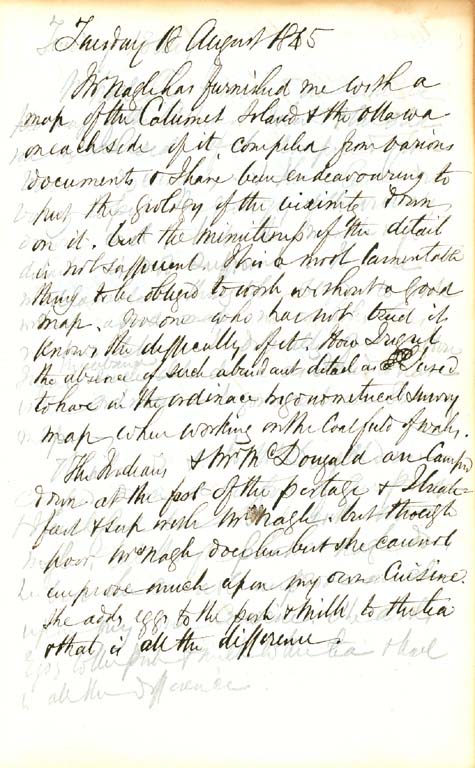 Tuesday 18 August 1845
Mr Nagle has furnished me with a
map of the Calumet Island & the Ottawa
on each side of it compiled from various
documents & I have been endeavouring to
put the geology of the vicinity down
on it. but the minuteness of the detail
is not sufficient. It is a most lamentable
thing to be obliged to work without a good
map. No one who has not tried it
knows the difficulty of it. How I regret
the absence of such abundant detail as I used
to have in the ordinance trigonometrical survey
map when working on the Coalfield of Wales.
The Indians & Mr McDougald are camped
down at the foot of the portage & I break-
fast & sup with Mr Nagle. but through
poor Mrs Nagle does her best she cannot
improve much upon my own Cuisine
She adds eggs to the pork & milk to the tea
& that is all the difference
eggs to the pork & milk to the tea & that
is all the difference.